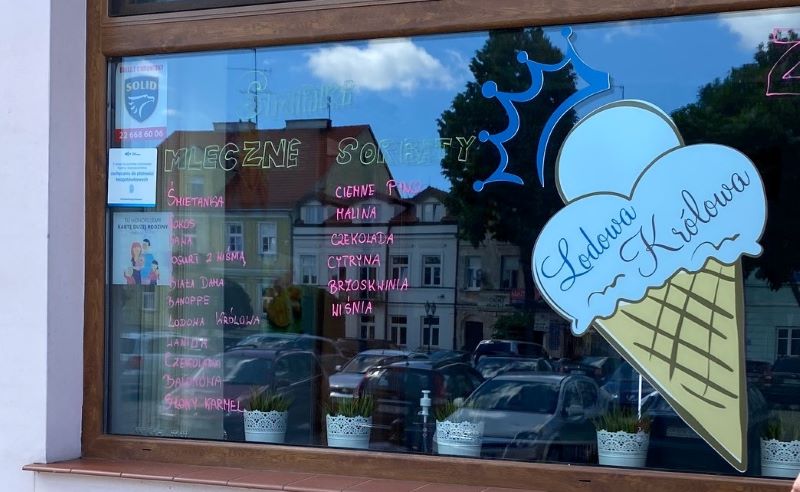 SOLID
22 668 60 06
TU HONORUJEMY
KARTĘ DUŻEJ RODZINY
Smaki
MLECZNE
ŚMIETANKA
KOKOS
JOGURT Z WIŚNIĄ
BIAŁA DAMA
BANOFFE
LODOWA KRÓLOWA
WANILIA
CZEKOLADA
BALONOWA
SŁONY KARMEL
SORBETY
CIEMNE
MALINA
CZEKOLADA
CYTRYNA
BRZOSKWINIA
WIŚNIA
Lodowa
Królowa